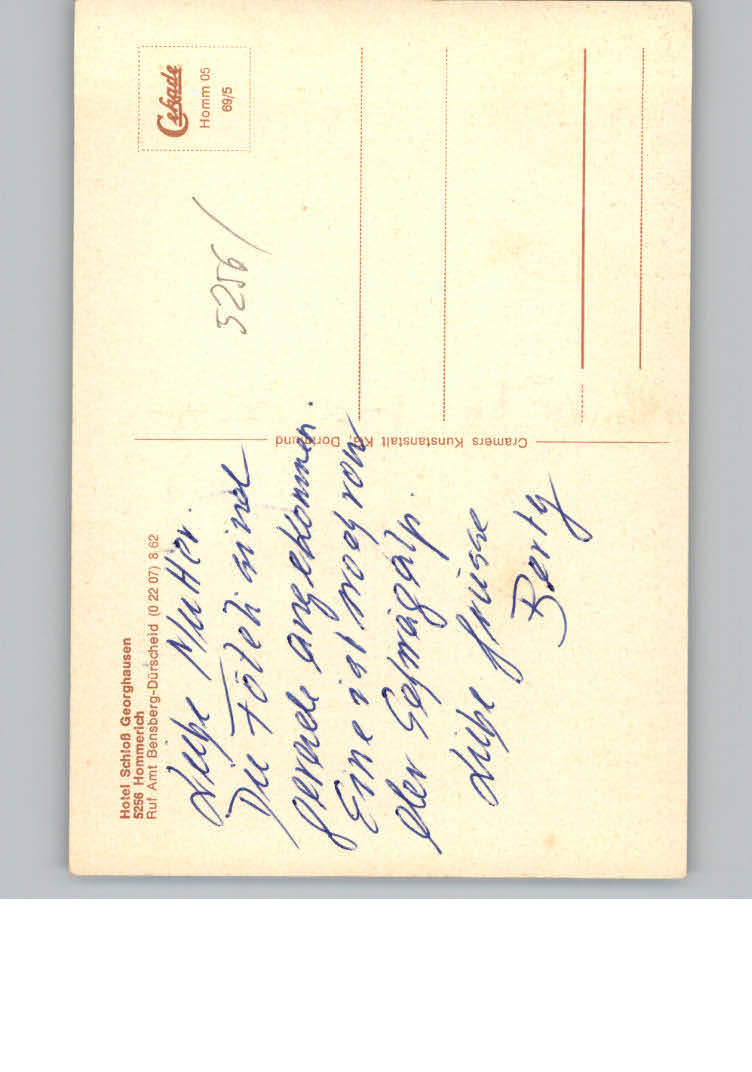 Hotel Schloß Georghausen
5256 Hommerich
Ruf Amt Bensberg-Dürscheid (0 22 07) 8 62
Liebe Mutter.
Die Föteli sind
gerade angekommen.
Eine ist noch von
der Schwägalp.
Liebe Grüsse
Berty
Cramers Kunstanstalt KG, Dortmund
Cekade
Homm 05
69/5
5256/